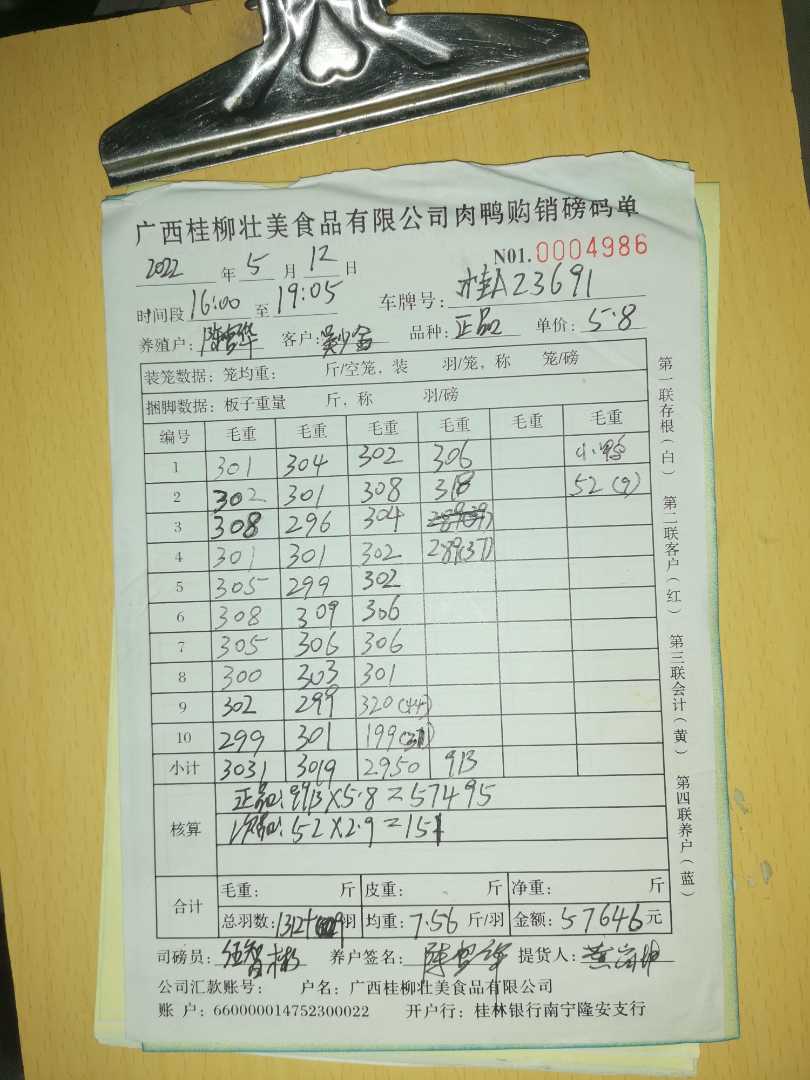 广西桂柳壮美食品有限公司肉鸭购销磅码单
N01.0004986
2022 年 5 月 12 日
时间段 16:00 至 19:05 车牌号: 桂A23691
养殖户: 客户: 品种: 正品 单价: 5.8
装笼数据: 笼均重: 斤/空笼, 装 羽/笼, 称 笼/磅
捆脚数据: 板子重量 斤, 称 羽/磅
编号 毛重 毛重 毛重 毛重 毛重
1 301 304 302 306 小鸭
2 302 301 308 318 52(9)
3 308 296 304
4 301 301 302 289(37)
5 305 299 302
6 308 309 306
7 305 306 306
8 300 303 301
9 302 299 320(44)
10 299 301 199
小计 3031 3019 2950 913
核算
正品: 9913×5.8=57495
次品: 52×2.9=151
合计
毛重: 斤 皮重: 斤 净重: 斤
总羽数: 1312+ 羽 均重: 7.56 斤/羽 金额: 57646 元
司磅员: 养户签名: 提货人:
公司汇款账号: 户名: 广西桂柳壮美食品有限公司
账户: 660000014752300022 开户行: 桂林银行南宁隆安支行
第一联存根(白)
第二联客户(红)
第三联会计(黄)
第四联养户(蓝)